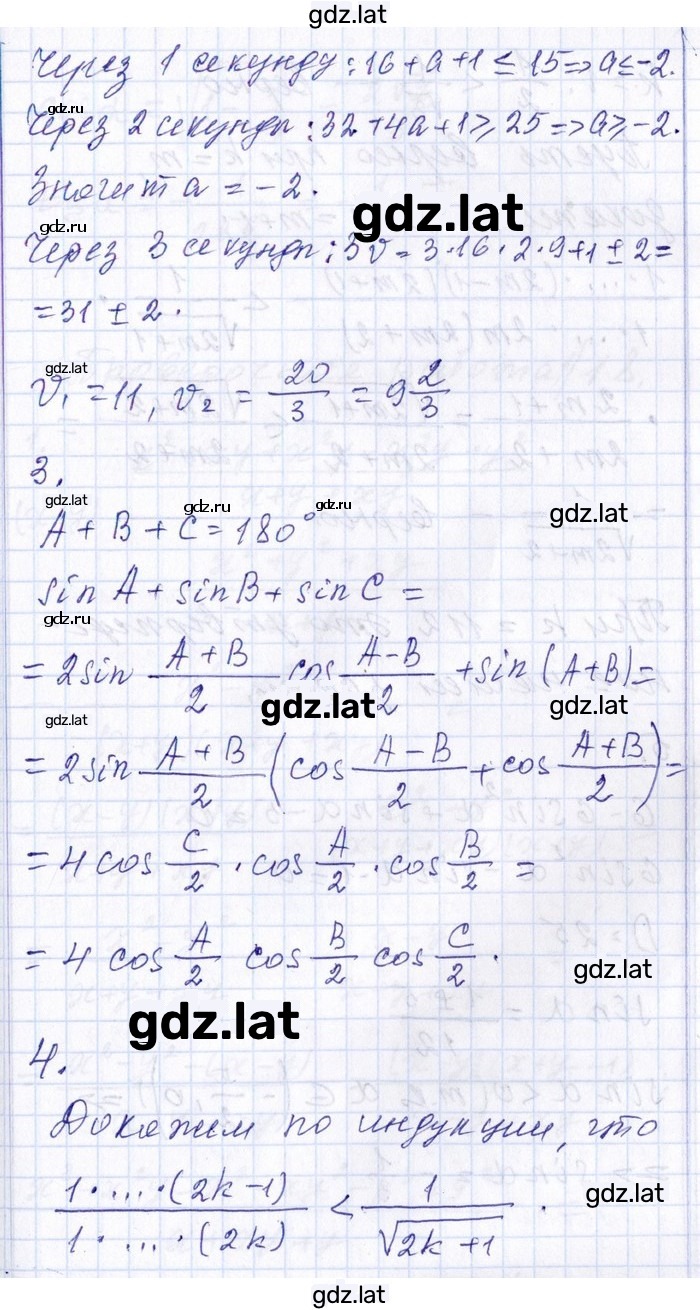 gdz.lat
Через 1 секунду: 16+a+1 ≤ 15 => a ≤ -2.
gdz.lat
gdz.ru
gdz.lat
Через 2 секунды: 32+4a+1 ≥ 25 => a ≥ -2.
Значит a = -2.
gdz.lat
gdz.ru
Через 3 секунды: 3v = 3·16·2·9+1 ± 2 =
= 31 ± 2.
gdz.lat
v₁ = 11, v₂ = 20/3 = 9 2/3
3.
gdz.lat
gdz.ru
gdz.ru
gdz.lat
A + B + C = 180°
sin A + sin B + sin C =
gdz.ru
= 2 sin (A+B)/2 cos (A-B)/2 + sin (A+B) =
gdz.lat
gdz.lat
gdz.lat
= 2 sin (A+B)/2 (cos (A-B)/2 + cos (A+B)/2) =
= 4 cos C/2 · cos A/2 · cos B/2 =
= 4 cos A/2 cos B/2 cos C/2.
gdz.lat
gdz.lat
4.
Докажем по индукции, что
(1·...·(2k-1))/(1·...·(2k)) < 1/√(2k+1).
gdz.lat
gdz.lat